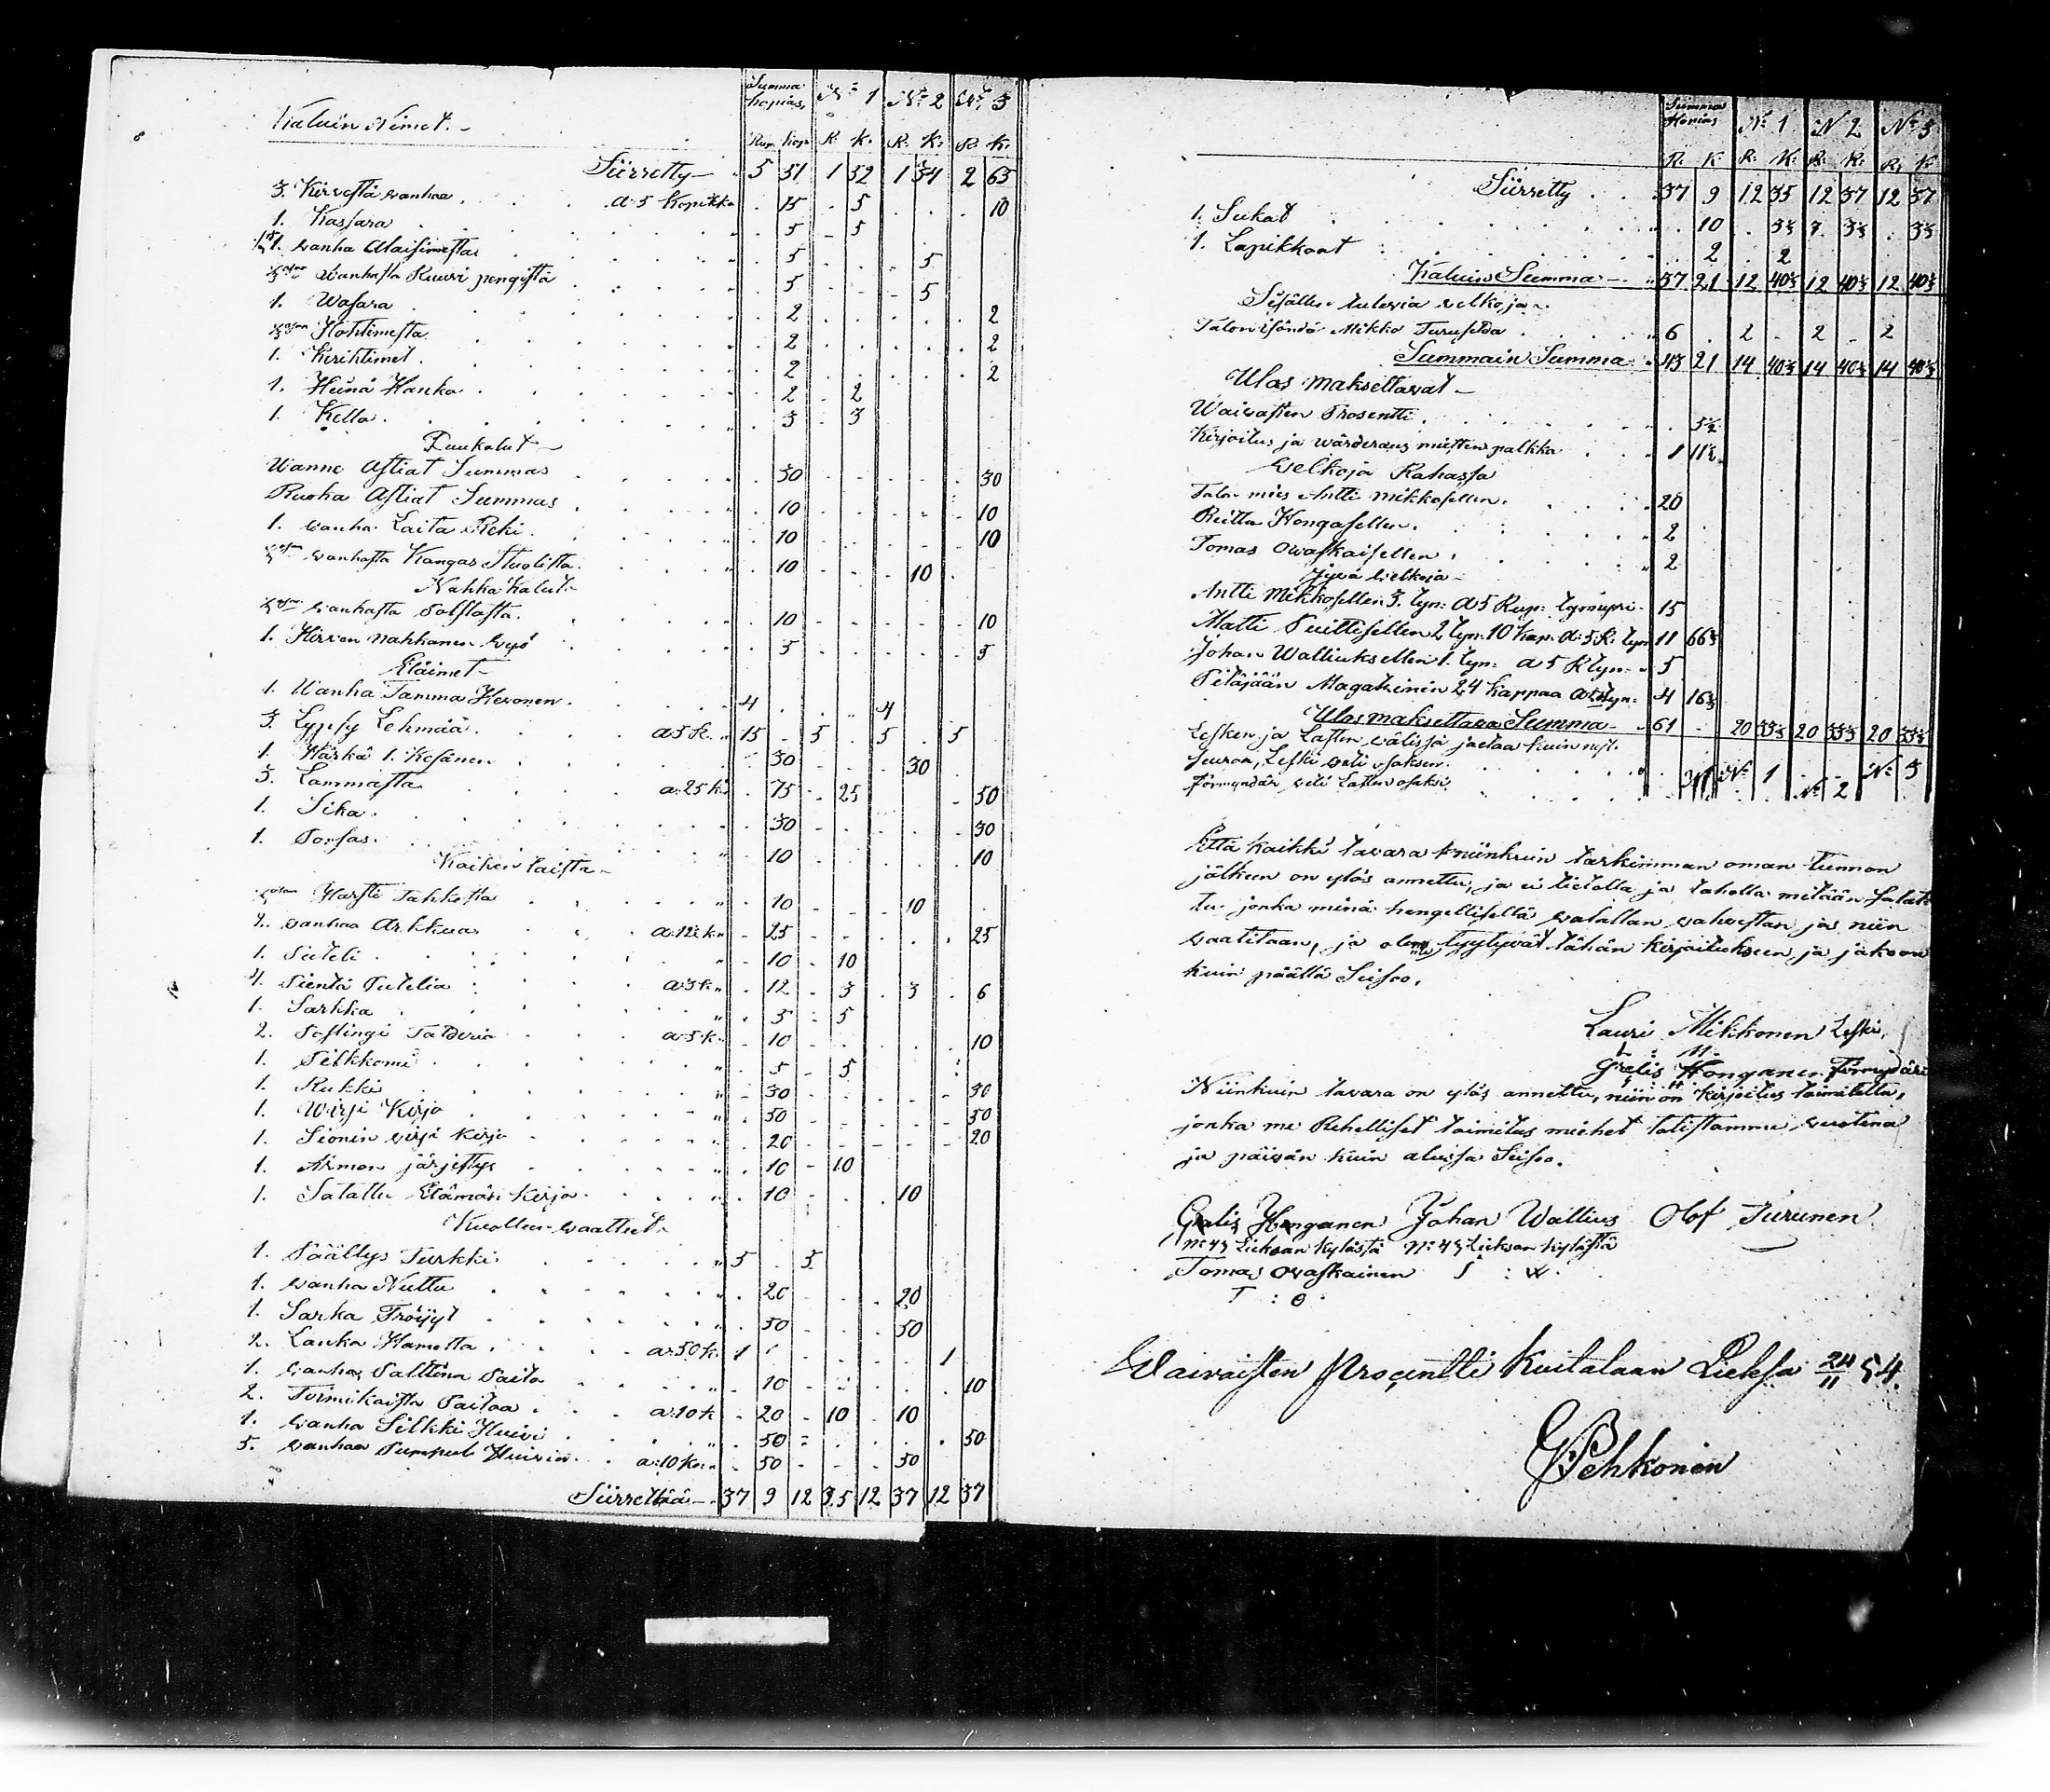 Kaluin Nimet. – Summa Hopias, No 1 No 2 No 3
Rup. Kop. R. K. R. K. R. K.
Siirretty – 5 51 1 52 1 34 2 65
3. Kirvestä wanhaa . . . a 5 Kopekka . 15 . 5 . . . 10
1. Kassara . 5 . 5
1. wanha Alaisimesta . 5 . . . 5
wanhasta Ruuri pengistä . 5 . . . 5
1. Wasara . 2 . . . . . 2
Hohtimesta . 2 . . . . . 2
1. Kerihtimet . 2 . . . . . 2
1. Heinä Hanko . 2 . 2
1. Kello . 3 . 3
Puukalut –
Wanne Astiat Summas . 30 . . . . . 30
Ruoka Astiat Summas . 10 . . . . . 10
1. wanha Laita Reki . 10 . . . . . 10
wanhasta Kangas Stuolista . 10 . . . 10
Nahka kalut –
wanhasta . 10 . . . . . 10
1. Hirven nahkanen wyö . 5 . . . . . 5
Eläimet –
1. Wanha Tamma Hevonen . 4 . . . 4
3. Lypsy Lehmää . . a 5 R. 15 . 5 . 5 . 5
1. Härkä 1. Kesänen . 30 . . . 30
3. Lammasta . . a: 25 k. . 75 . 25 . . . 50
1. Sika . 30 . . . . . 30
1. Porsas . 10 . . . . . 10
Kaiken laista –
Tahkosta . 10 . . . 10
2. wanhaa Arkkua . . a: 12½ k. . 25 . . . . . 25
1. Suteli . 10 . 10
4. Pientä Putelia . . a 3 k. . 12 . 3 . 3 . 6
1. Sarkka . 5 . 5
2. Poslingi Talderia . . a: 5 k. . 10 . . . . . 10
1. Pilkkomi . 5 . 5
1. Rukki . 30 . . . . . 30
1. Wirsi Kirja . 50 . . . . . 50
1. Sionin wirsi kirja . 20 . . . . . 20
1. Armon järjestys . 10 . 10
1. Elämän kirja . 10 . . . 10
Kuollen waatteet –
1. Päällys Turkki 5 . 5
1. wanha Nuttu . 20 . . . 20
1. Sarka Tröyyt . 50 . . . 50
2. Lanka Hametta . . a: 50 k. 1 . . . . . 1
1. wanha Palttina Paita . 10 . . . . . 10
2. Toimikaista Paitaa . . a: 10 k . 20 . 10 . 10
1. wanha Silkki Huivi . 50 . . . . . 50
5. wanhaa Pumpuli Huivia . a: 10 Ko. . 50 . . . 50
Siirrettää – 37 9 12 35 12 37 12 37
Summas Hopias No 1 N 2 No 3
R. K. R. K. R. K. R. K.
Siirretty . . 37 9 12 35 12 37 12 37
1. Sukat . 10 . 3⅓ . 3⅓ . 3⅓
1. Lapikkaat . 2 . 2
Kaluin Summa – 37 21 12 40⅓ 12 40⅓ 12 40⅓
Sisälle tulevia velkoja –
Talon isändä Mikko Turuselda . 6 . 2 . 2 . 2
Summain Summa 43 21 14 40⅓ 14 40⅓ 14 40⅓
Ulos maksettavat –
Waivasten Prosentti . 5½
Kirjoitus ja wärderaus miesten palkka . 1 11½
Welkoja Rahassa
Talon mies Antti Mikkosellen . 20
Reitta Hongasellen . 2
Tomas Owaskaisellen . 2
Jyvä Welkoja –
Antti Mikkosellen 3. tyn: a 5 Rup: tynnyri – 15
Matti Puittisellen 2 tyn. 10 kap. a: 5 R. tyn 11 66⅔
Johan Walliuksellen 1. tyn: a 5 R tyn. – 5
Pitäjään Magatzinin 24 kappaa tyn. 4 16⅔
Ulos maksettava Summa – 61 – 20 33⅓ 20 33⅓ 20 33⅓
Lesken ja Lasten välissä jaetaa kuin nyt
seuraa, Leski veti osaksen . No 1 . . No 3
Förmyndär veti Lasten osaksi . No 2
Että kaikki tavara niinkuin tarkimman oman tunnon
jälkeen on ylös annettu, ja ei tietolla ja taholla mitään salat
tu jonka minä hengellisellä walallan wahvistan ja niin
waatitaan, ja olemme tyytyvät tähän kirjoitukseen ja jakoon
kuin päällä Seisoo.
Lauri Mikkonen Leski,
L : M.
Grelis Honganen Förmyndäri
Niinkuin tavara on ylös annettu, niin on kirjoitus toimitettu,
jonka me Rehelliset toimitus miehet totistamme vuotena
ja päivän kuin alussa Seisoo.
Grelis Honganen Johan Wallius Olof Turunen
No 43 Lieksan Kylästä No 43 Lieksan kylästä
Tomas Owaskainen J : W.
T : O.
Waivaisten Procentti Kuitataan Lieksa 24/11 54.
G Pehkonen